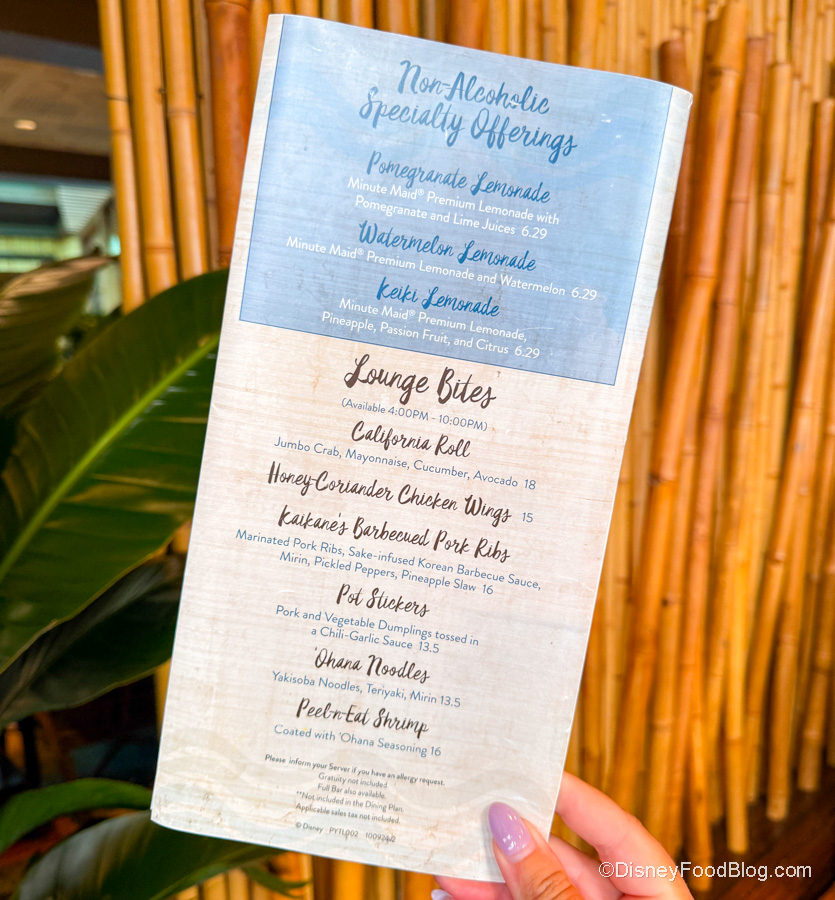 Non-Alcoholic
Specialty Offerings
Pomegranate Lemonade
Minute Maid® Premium Lemonade with
Pomegranate and Lime Juices 6.29
Watermelon Lemonade
Minute Maid® Premium Lemonade and Watermelon 6.29
Keiki Lemonade
Minute Maid® Premium Lemonade,
Pineapple, Passion Fruit, and Citrus 6.29
Lounge Bites
(Available 4:00PM - 10:00PM)
California Roll
Jumbo Crab, Mayonnaise, Cucumber, Avocado 18
Honey-Coriander Chicken Wings 15
Kaikane's Barbecued Pork Ribs
Marinated Pork Ribs, Sake-infused Korean Barbecue Sauce,
Mirin, Pickled Peppers, Pineapple Slaw 16
Pot Stickers
Pork and Vegetable Dumplings tossed in
a Chili-Garlic Sauce 13.5
'Ohana Noodles
Yakisoba Noodles, Teriyaki, Mirin 13.5
Peel-n-Eat Shrimp
Coated with 'Ohana Seasoning 16
Please inform your Server if you have an allergy request.
Gratuity not included.
Full Bar also available.
**Not included in the Dining Plan.
Applicable sales tax not included.
© Disney PYTL002
©DisneyFoodBlog.com